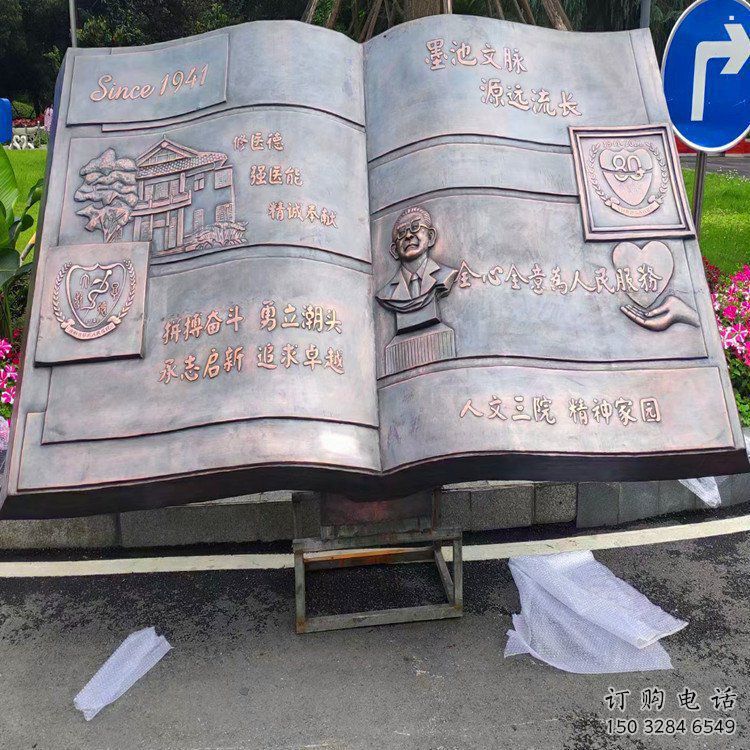 Since 1941
修医德
强医能
精诚奉献
拼搏奋斗 勇立潮头
承志启新 追求卓越
墨池文脉
源远流长
全心全意為人民服務
人文三院 精神家园
订购电话
150 3284 6549